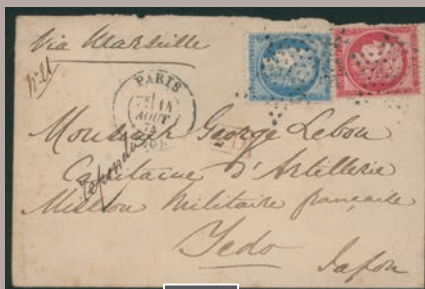 Via Marseille
PARIS
14
AOUT
répondu
Monsieur George Lebon
Capitaine d'Artillerie
Mission Militaire française
Yedo
Japon